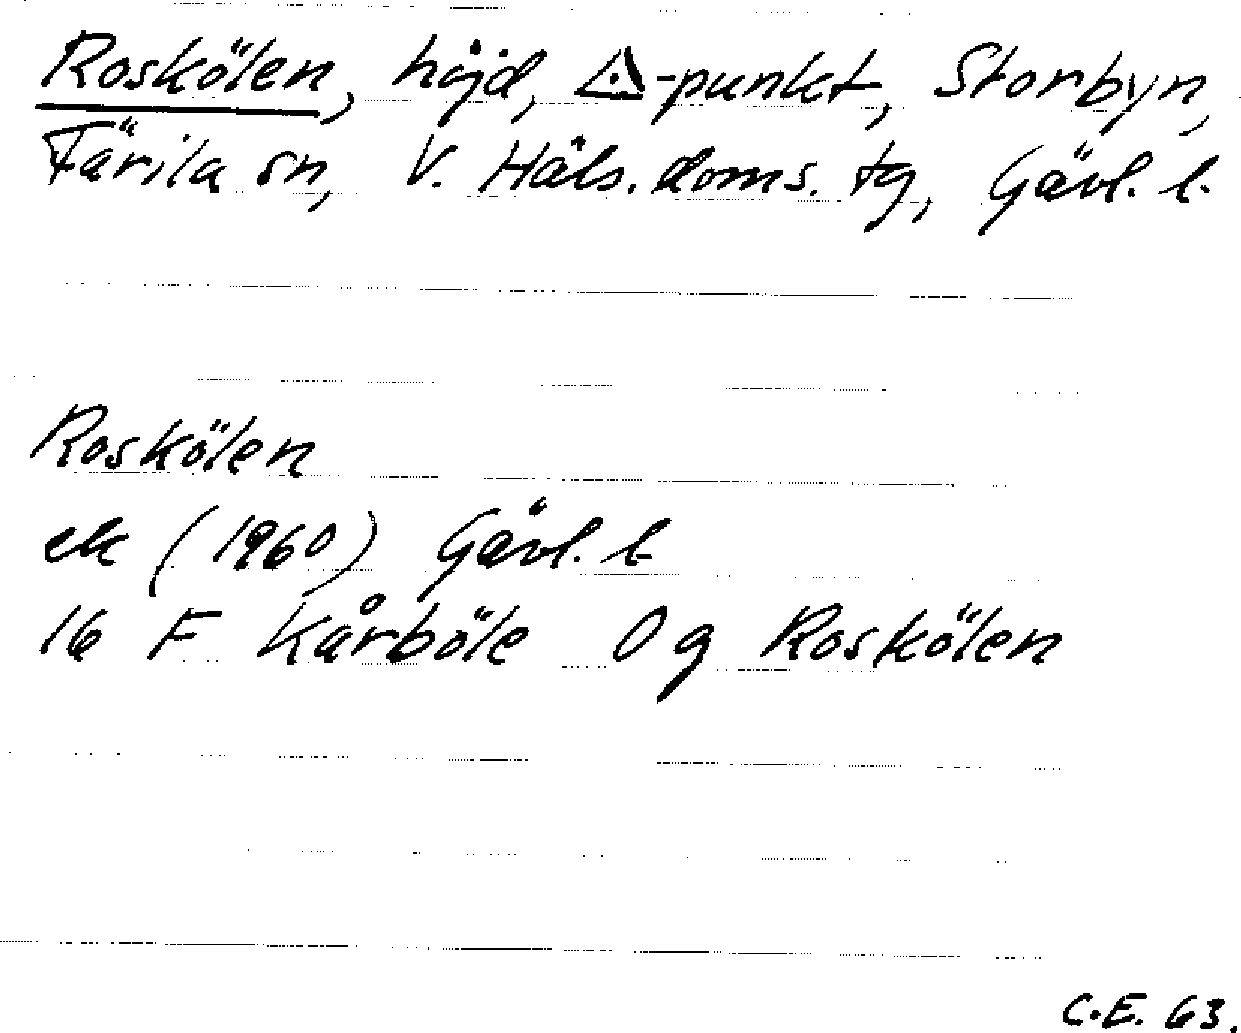 Roskölen, höjd, ⚠-punkt, Storbyn,
Färila sn, V. Häls. doms. tg, Gävl. l.
Roskölen
ek (1960) Gävl. l.
16 F Kårböle 0 g Roskölen
C.E. 63.